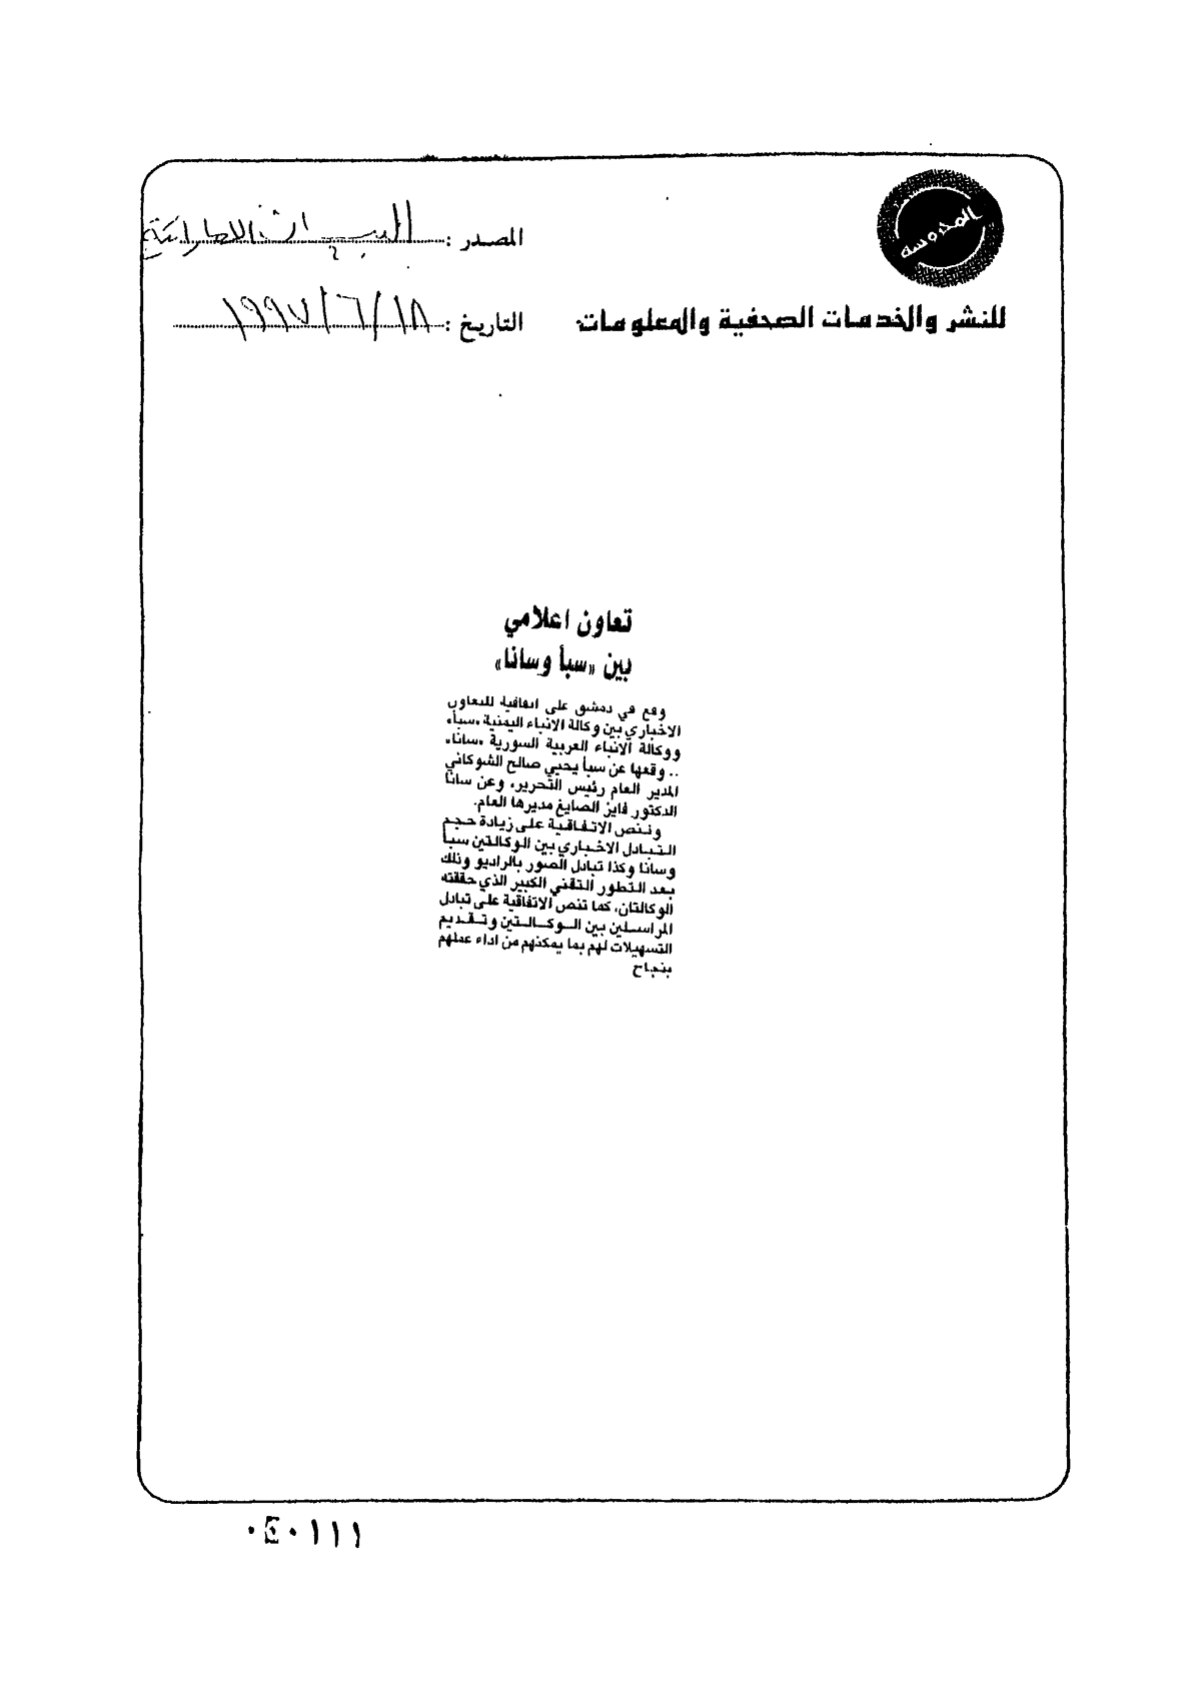 المحروسة
المصدر : البيان الاماراتية
للنشر والخدمات الصحفية والمعلومات
التاريخ : ١٩٩٧/٦/١٨
تعاون اعلامي
بين «سبأ وسانا»
وقع في دمشق على اتفاقية للتعاون
الاخباري بين وكالة الانباء اليمنية «سبأ»
ووكالة الانباء العربية السورية «سانا»
.. وقعها عن سبأ يحيي صالح الشوكاني
المدير العام رئيس التحرير، وعن سانا
الدكتور فايز الصايغ مديرها العام.
وتنص الاتفاقية على زيادة حجم
التبادل الاخباري بين الوكالتين سبأ
وسانا وكذا تبادل الصور بالراديو وذلك
بعد التطور التقني الكبير الذي حققته
الوكالتان، كما تنص الاتفاقية على تبادل
المراسلين بين الوكالتين وتقديم
التسهيلات لهم بما يمكنهم من اداء عملهم
بنجاح